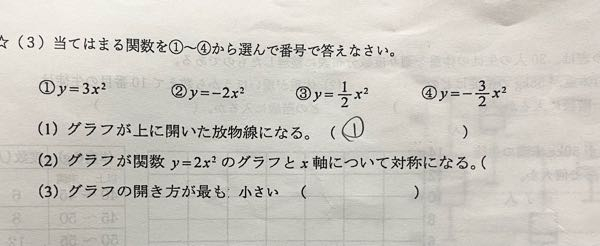 ☆(3) 当てはまる関数を①~④から選んで番号で答えなさい。
①y=3x² ②y=-2x² ③y=\frac{1}{2}x² ④y=-\frac{3}{2}x²
(1) グラフが上に開いた放物線になる。( ① )
(2) グラフが関数 y=2x² のグラフと x 軸について対称になる。(
(3) グラフの開き方が最も 小さい ( )